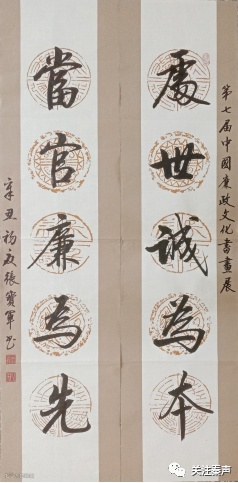 第七届中國廉政文化書畫展
處世誠為本
當官廉為先
辛丑初夏張寶軍书
关注秦声